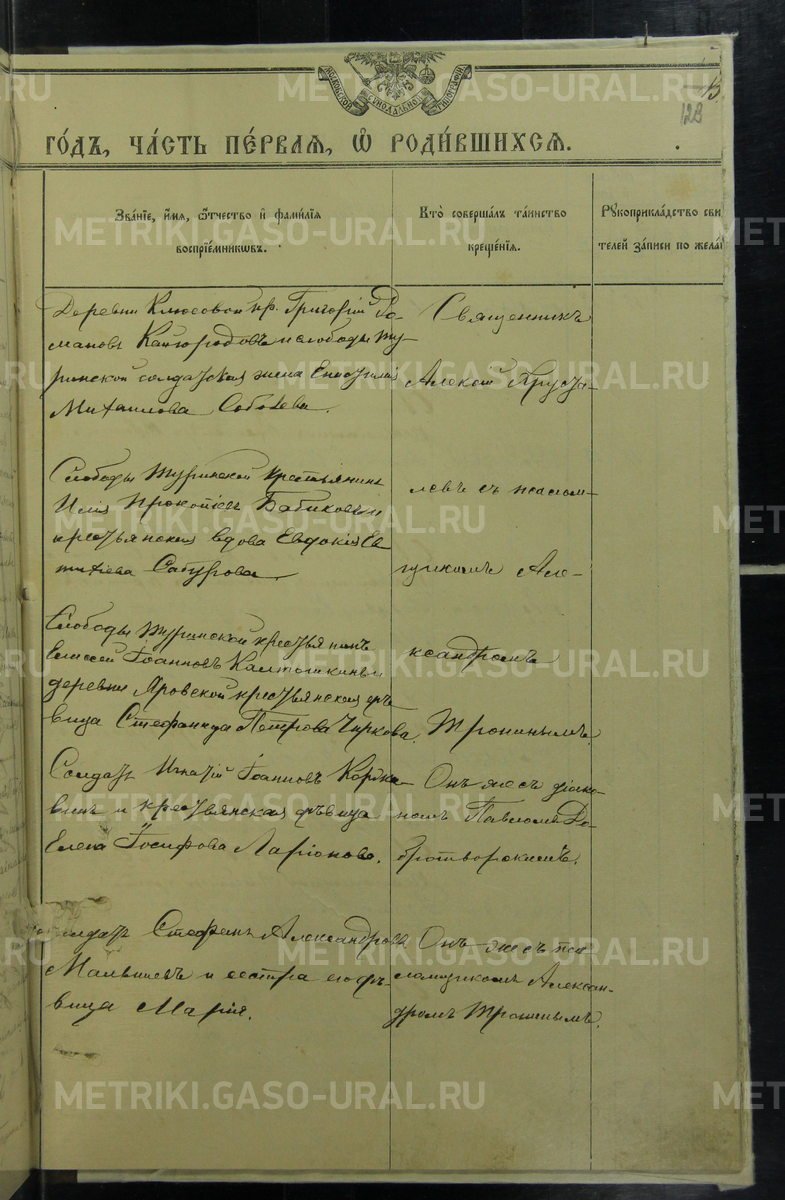 МОСКОВСКОЙ СѴНОДАЛЬНОЙ ТИПОГРАФІИ
128
ГО́ДЪ, ЧА́СТЬ ПЕ́РВАЯ, Ѽ РОДИ́ВШИХСЯ.
Зва́нїе, и҆́мя, ѻ҆́тчество и҆ фами́лїя
воспрїе́мникѡвъ.
Кто̀ соверша́лъ та́инство
креще́нїя.
Рꙋкоприкла́дство сви
те́лей за́писи по жела́
Деревни Клюсовой кр. Григорій Ро-
мановъ Кайгородовъ и слободы Ту-
ринской солдатская жена
Михаилова Соболева.
Священникъ
Алексій Пруса-
Слободы Туринской крестьянинъ
Илія Прокопіевъ Бабиковъ и
крестьянская вдова Евдокія Ев
тихіева Сабурова.
ловъ съ псалом-
щикомъ Але-
Слободы Туринской крестьянинъ
Елисей Іоанновъ Калташкинъ и
деревни Яровской крестьянская дѣ-
вица Стефанида Петрова Чиркова.
ксандромъ
Трониным.
Солдатъ Игнатій Іоанновъ Коржа-
винъ и крестьянская дѣвица
Елена Іосифова Ларіонова.
Онъ же съ діако-
номъ Павломъ До-
бротворскимъ.
Солдатъ Стефанъ Александровъ
Мальцевъ и сестра его дѣ-
вица Марія.
Онъ же съ пса
ломщикомъ Алексан-
дромъ Трониным.
METRIKI.GASO-URAL.RU